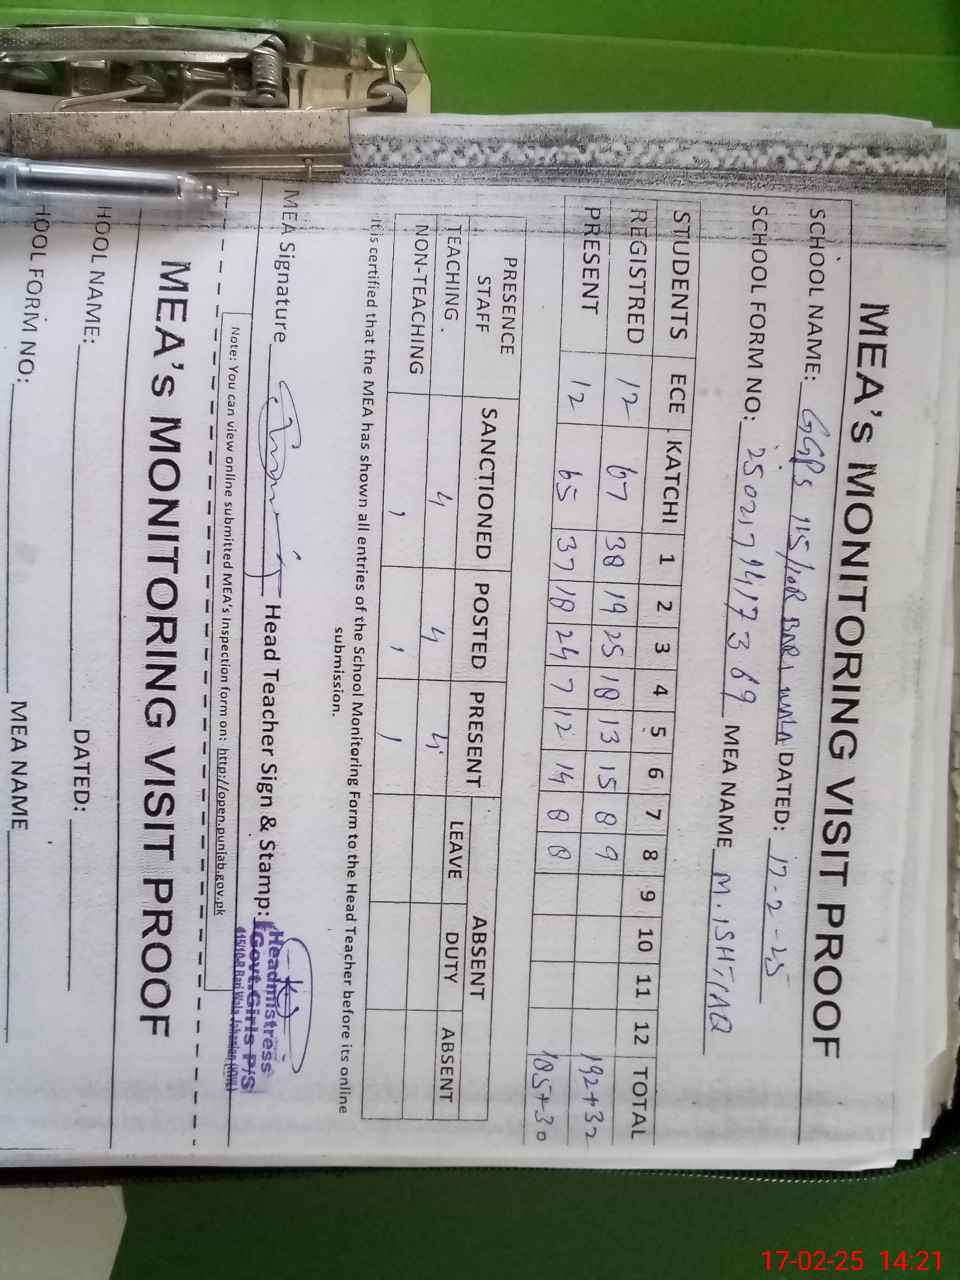 MEA's MONITORING VISIT PROOF
SCHOOL NAME: GGPS 115/10R BARI WALA DATED: 17-2-25
SCHOOL FORM NO: MEA NAME M. ISHTIAQ
STUDENTS ECE KATCHI 1 2 3 4 5 6 7 8 9 10 11 12 TOTAL
REGISTRED 12 67 38 19 25 18 13 15 8 9 192+32
PRESENT 12 65 37 18 24 7 12 14 8 8 185+30
PRESENCE STAFF SANCTIONED POSTED PRESENT ABSENT
LEAVE DUTY ABSENT
TEACHING 4 4 4
NON-TEACHING 1 1 1
It is certified that the MEA has shown all entries of the School Monitoring Form to the Head Teacher before its online
submission.
MEA Signature Head Teacher Sign & Stamp:
Headmistress
Govt.Girls P/S
115/10-R Bari Wala Jahanian (KWL)
Note: You can view online submitted MEA's Inspection form on: http://open.punjab.gov.pk
MEA's MONITORING VISIT PROOF
HOOL NAME: DATED:
HOOL FORM NO: MEA NAME
17-02-25 14:21